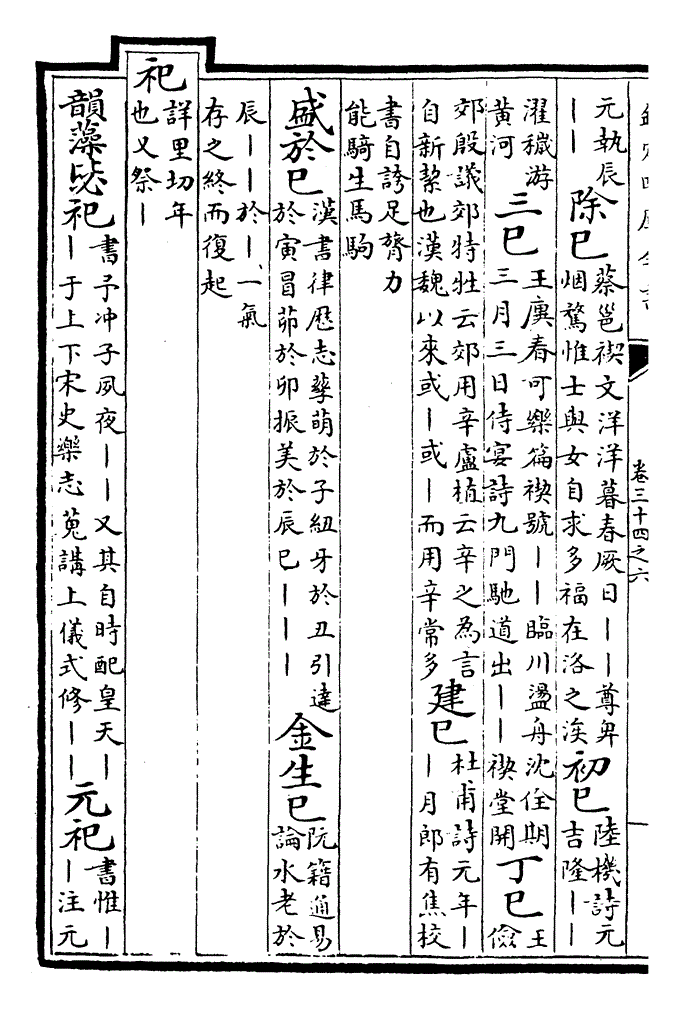 卷三十四之六
元執辰
丨丨
除巳
蔡邕禊文洋洋暮春厥日丨丨尊卑
烟騖惟士與女自求多福在洛之涘
初巳
陸機詩元
吉隆丨丨
濯穢游
黃河
三巳
王廙春可樂篇禊號丨丨臨川盪舟沈佺期
三月三日侍宴詩九門馳道出丨丨禊堂開
丁巳
王
儉
郊殷議郊特牲云郊用辛盧植云辛之為言
自新絜也漢魏以來或丨或丨而用辛常多
建巳
杜甫詩元年丨
丨月郎有焦校
書自誇足膂力
能騎生馬駒
盛於巳
漢書律厯志孳萌於子紐牙於丑引達
於寅冒茆於卯振美於辰巳丨丨丨
金生巳
阮籍通易
論水老於
辰丨丨於丨一氣
存之終而復起
祀
詳里切年
也又祭丨
韻藻毖祀
書予冲子夙夜丨丨又其自時配皇天丨
丨于上下宋史樂志蒐講上儀式修丨丨
元祀
書惟丨
丨注元